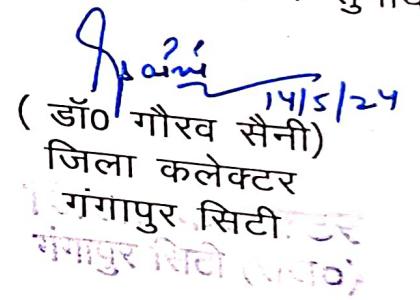 14/5/24
( डॉ0 गौरव सैनी)
जिला कलेक्टर
गंगापुर सिटी
गंगापुर सिटी